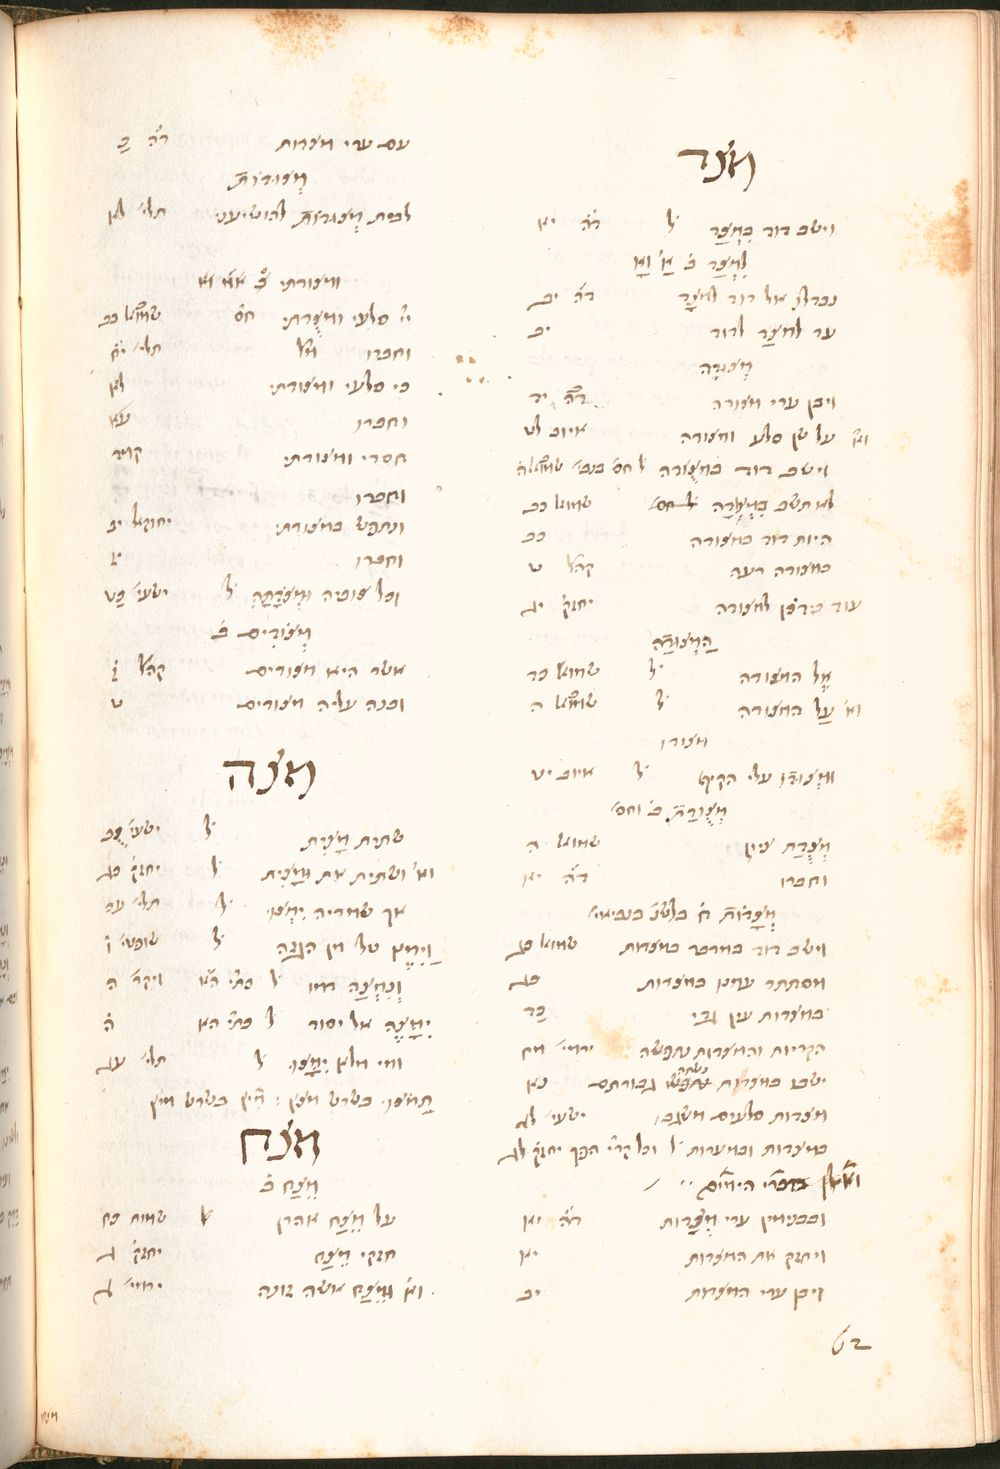 מצד
וישב דוד בַמְצַד ל ד״ה יא
לַמְצַד ב׳
נבדלו אל דויד למצד ד״ה יב
עד למצד לדויד יב
מְצוּרָה
ויבן ערי מצורה ד״ה יד
על שן סלע ומצודה איוב לט
וישב דוד במצודה ל
לא תשב במצודה שמוא כב
היות דוד במצודה כב
במצודה רעה קהל ט
למצודה יחזק׳ יג
הַמְצוּדָה
אל המצודה ל שמוא כד
וא׳ על המצודה ל שמוא ה
מצודו
ומצודו עלי הקיף ל איוב יט
מְצֻדַת ב׳ וחס׳
מְצֻדַת ציון שמוא ה
וחברו ד״ה יא
וישב דוד במדבר במצדות שמוא כג
מסתתר עמנו במצדות כג
במצדות עין גדי כד
הקריות והמצדות נתפשה ירמי׳ מח
ישבו במצדות נשתה גבורתם נא
מצדות סלעים משגבו ישעי׳ לג
במצדות ובמערות ל יחזק׳ לג
דברי הימים
ובבנימין ערי מְצֻרוֹת ד״ה יא
ויחזק את המצרות יא
ויבן ערי המצרות יב
62
עם ערי מצרות ד״ה כ
מְצוּדוֹת
לבית מְצוּדוֹת להושיעני תלי׳ לא
ומצודתי
יי׳ סלעי ומְצֻדָתי חס׳ שמוא כב
וחברו תלי׳ יח
כי סלעי ומצודתי לא
וחברו עא
חסדי ומצודתי קמד
וחברו
ונתפש במצודתי יחזקאל יב
וחברו יז
וכל צוביה ומְצֹדָתָהּ ל ישעי׳ כט
מְצוֹדִים ב׳
אשר היא מצודים קהל ז
ובנה עליה מצודים ט
מצה
שתית מָצִית ל ישעי׳
וא׳ ושתית אותה ומָצִית ל יחזק׳ כג
אך שמריה יִמְצוּ ל תלי׳ עה
וַיִמֶץ טל מן הגזה ל שופטי׳ ו
וְנִמְצָה דמו ל ויקר׳ ה
יִמָצֵה אל יסוד ל ה
ומי מלא יִמָצוּ ל תלי׳ עג
תמצו בשרש מצץ : מיץ בשרש מיץ
מצח
מֵצַח ב׳
על מֵצַח אהרן ל שמות כח
חזקי מֵצַח יחזק׳ ג
וא׳ ומֵצַח אשה זונה ירמי׳ ג